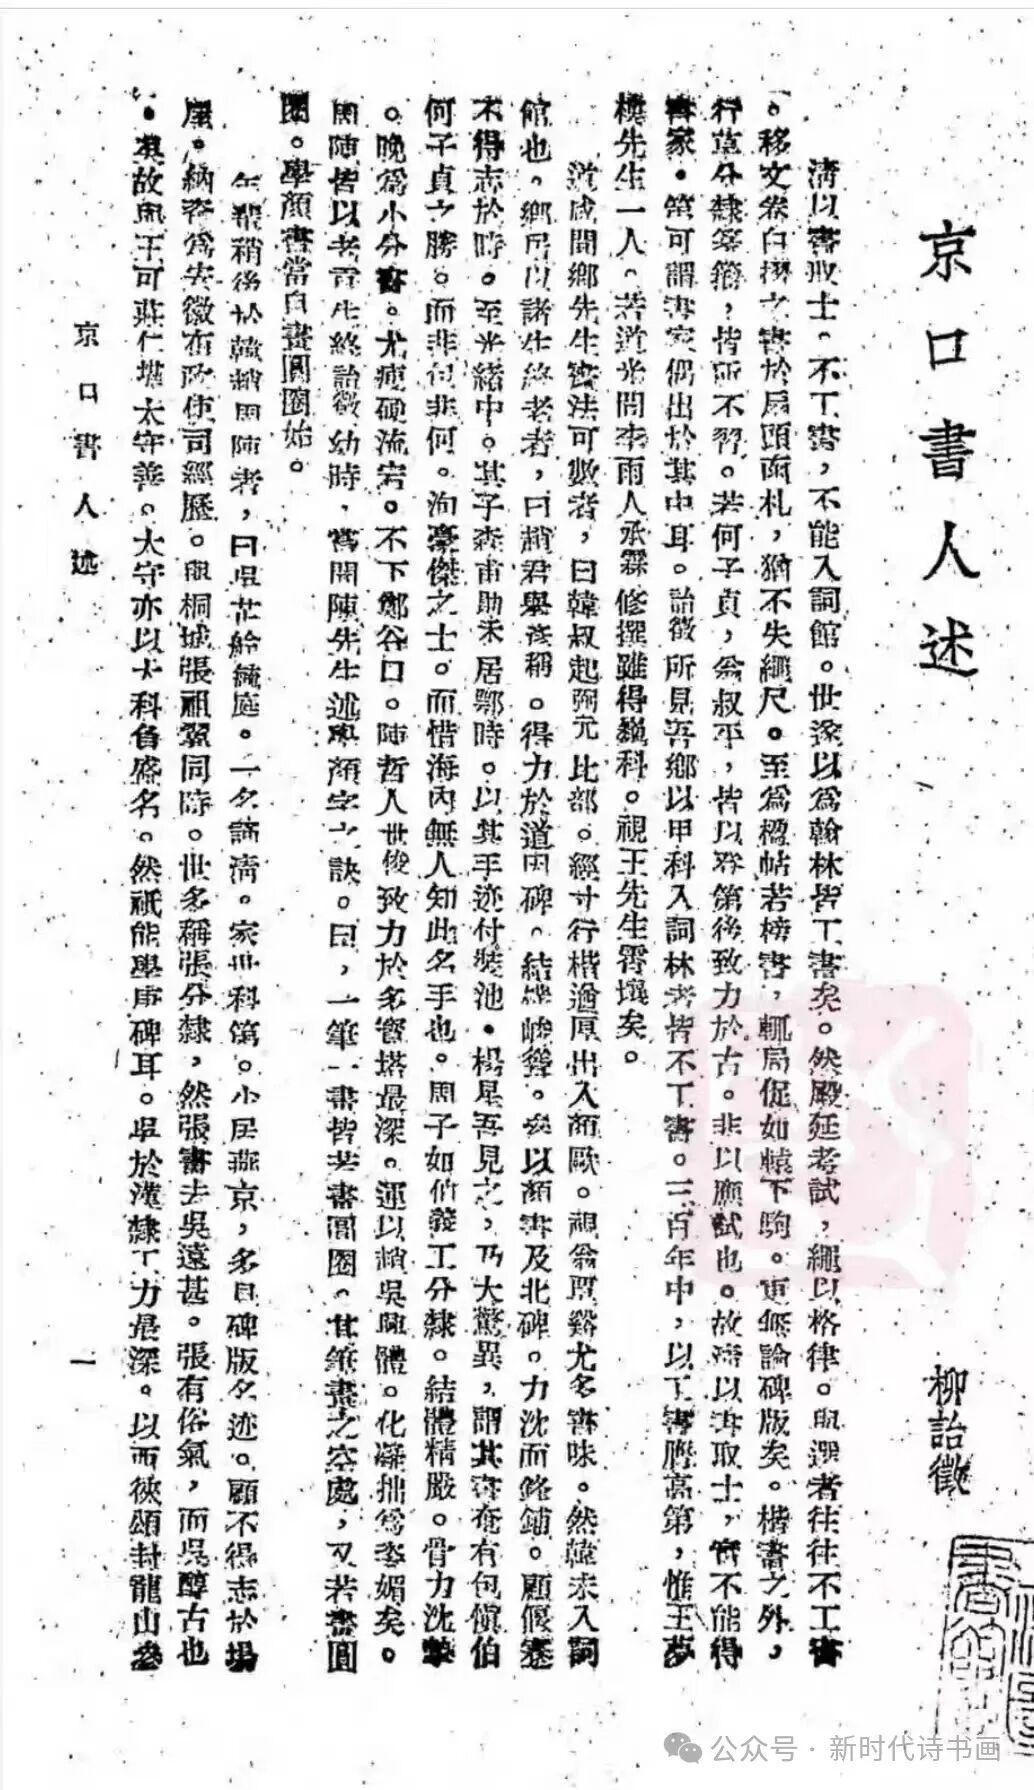 京口書人述
柳詒徵
清以書取士。不工書，不能入詞館。世遂以爲翰林皆工書矣。然殿廷考試，繩以格律。與選者往往不工書
。移文卷白摺之書於扇頭面札，猶不失繩尺。至爲楹帖若榜書，輒局促如轅下駒。更無論碑版矣。楷書之外，
行草分隸篆籀，皆所不習。若何子貞，翁叔平，皆以登第後致力於古。非以應試也。故清以書取士，實不能得
書家。第可謂書家偶出於其中耳。詒徵所見吾鄉以甲科入詞林者皆不工書。三百年中，以工書膺高第，惟王夢
樓先生一人。若道光間李雨人承霖修撰雖得巍科。視王先生霄壤矣。
道咸間鄉先生書法可數者，曰韓叔起弼元比部。經寸行楷遒厚出入顏歐。視翁覃谿尤多書味。然韓未入詞
館也。鄉居以諸生終老者，曰趙君舉彥稱。得力於道因碑。結體峻聳。參以顏書及北碑。力沈而鋒鋪。顧偃蹇
不得志於時。至光緒中。其子森甫勛禾居鄂時。以其手迹付裝池。楊星吾見之，乃大驚異，謂其書奄有包愼伯
何子貞之勝。而非包非何。洵豪傑之士。而惜海內無人知此名手也。周子如伯義工分隸。結體精嚴。骨力沈摯
。晚爲小分書。尤瘦硬流宕。不下鄭谷口。陳哲人世俊致力於多寶塔最深。運以趙吳興體。化凝拙爲姿媚矣。
周陳皆以老青生終詒徵幼時，嘗聞陳先生述學顏字之訣。曰，一筆一畫皆若畫圓圈。其筆畫之空處，又若畫圓
圈。學顏書當自畫圓圈始。
年輩稍後於韓趙周陳者，曰吳芷舲毓庭。一名誦淸。家世科第。少居燕京，多見碑版名迹。顧不得志於場
屋。納眷爲安徽布政使司經歷。與桐城張祖翼同時。世多稱張分隸，然張書去吳遠甚。張有俗氣，而吳醇古也
。其故與王可莊仁堪太守善。太守亦以大科負盛名。然祇能學唐碑耳。卓於漢隸工力最深。以西狹頌封龍山參
京口書人述
一
公众号·新时代诗书画